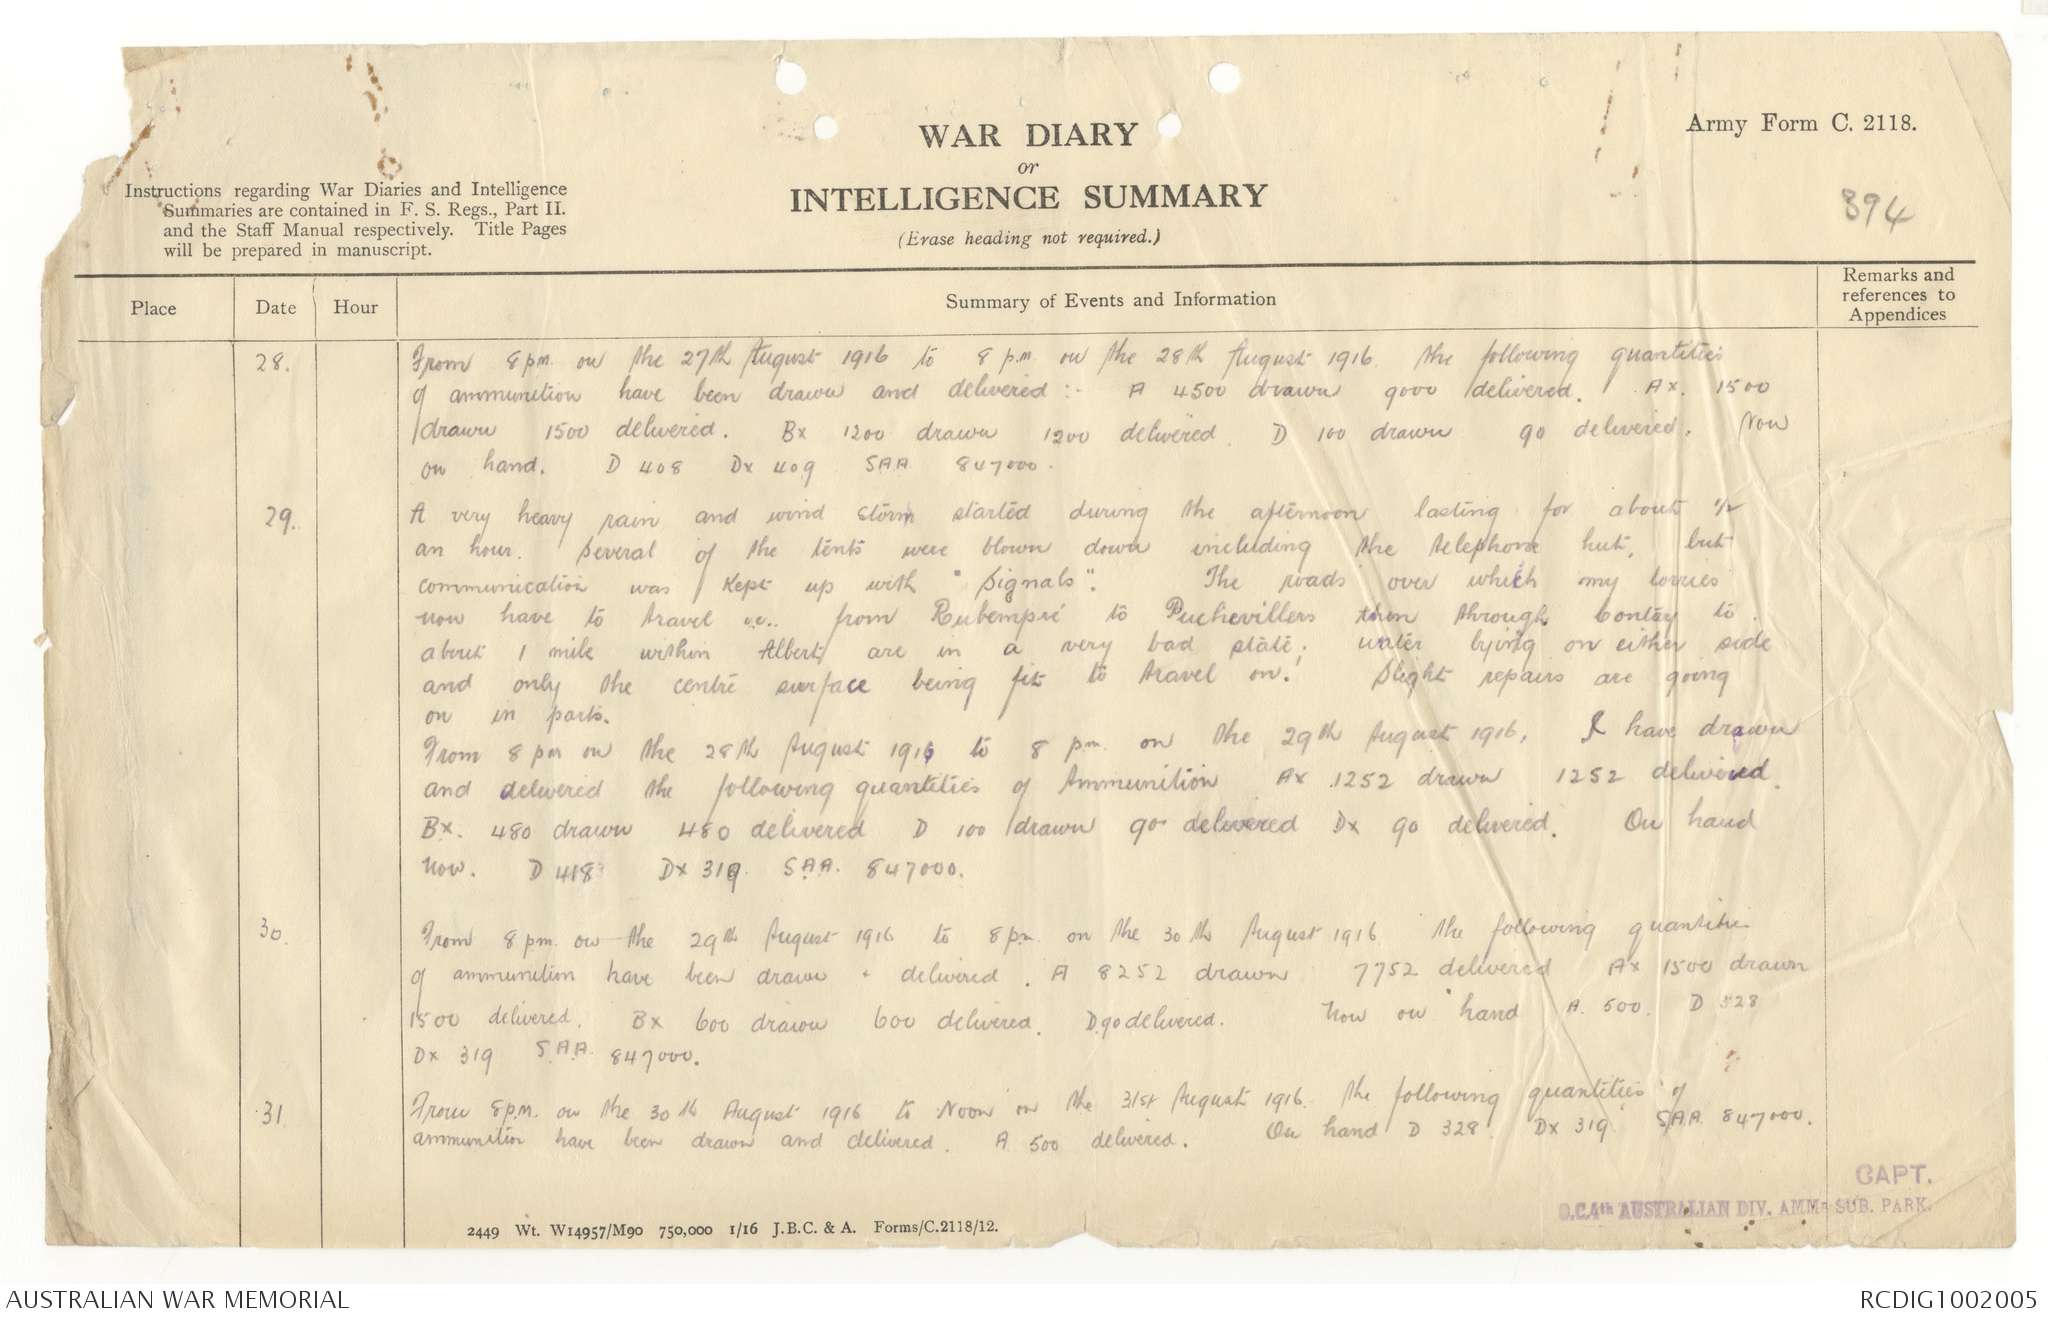 WAR DIARY
or
INTELLIGENCE SUMMARY
(Erase heading not required.)
Army Form C. 2118.
394
Instructions regarding War Diaries and Intelligence
Summaries are contained in F. S. Regs., Part II.
and the Staff Manual respectively. Title Pages
will be prepared in manuscript.
Place Date Hour Summary of Events and Information Remarks and references to Appendices
28. From 8 pm. on the 27th August 1916 to 8 p.m on the 28th August 1916. the following quantities
of ammunition have been drawn and delivered :- A 4500 drawn 9000 delivered. Ax. 1500
drawn 1500 delivered. Bx 1200 drawn 1200 delivered. D 100 drawn 90 delivered. Now
on hand. D 408 Dx 409 SAA 847000.
29. A very heavy rain and wind storm started during the afternoon lasting for about 1/2
an hour. Several of the tents were blown down including the telephone hut, but
communication was kept up with "Signals". The roads over which my lorries
now have to travel i.e.. from Rubempré to Puchevillers then through Contay to
about 1 mile within Albert, are in a very bad state; water lying on either side
and only the centre surface being fit to travel on. Slight repairs are going
on in parts.
From 8 pm on the 28th August 1916 to 8 pm. on the 29th August 1916, I have drawn
and delivered the following quantities of Ammunition Ax 1252 drawn 1252 delivered.
Bx. 480 drawn 480 delivered D 100 drawn 90 delivered Dx 90 delivered. On hand
now. D 418 Dx 319. SAA. 847000.
30. From 8 pm. on the 29th August 1916 to 8 pm. on the 30th August 1916 the following quantities
of ammunition have been drawn & delivered. A 8252 drawn 7752 delivered Ax 1500 drawn
1500 delivered. Bx 600 drawn 600 delivered. D.90 delivered. Now on hand A. 500. D 328
Dx 319 S.A.A. 847000.
31. From 8 p.m. on the 30th August 1916 to Noon on the 31st August 1916. the following quantities of
ammunition have been drawn and delivered. A 500 delivered. On hand D 328. Dx 319 S.A.A. 847000.
CAPT.
O.C. 4th AUSTRALIAN DIV. AMMn SUB. PARK.
2449 Wt. W14957/M90 750,000 1/16 J.B.C. & A. Forms/C.2118/12.
AUSTRALIAN WAR MEMORIAL
RCDIG1002005